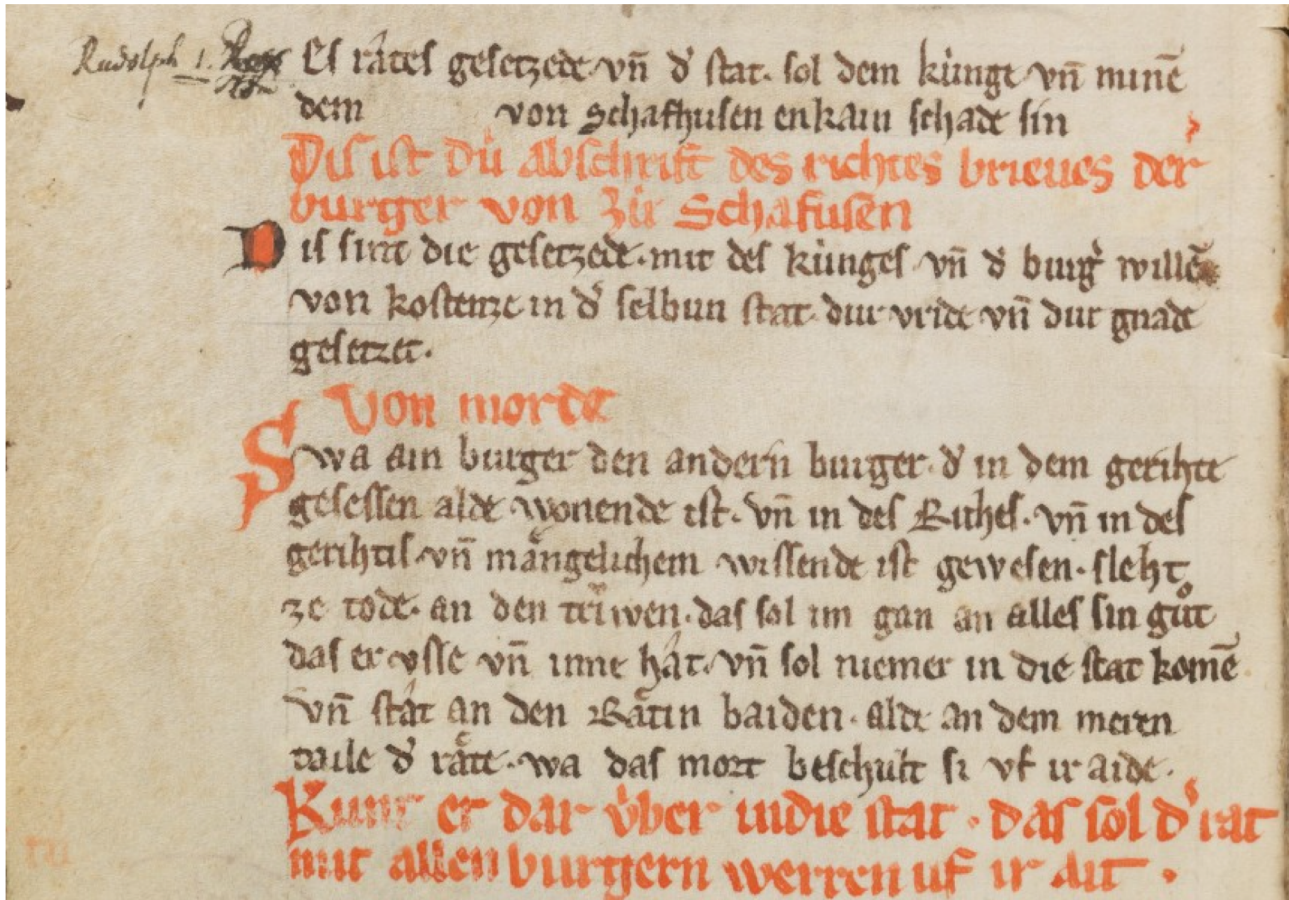 Rudolph 1. Rex
Es râtes gesetzede vn̄ d' stat. sol dem kunge vn̄ minē
dem von Schafhusen enkain schade sin
Dis ist Dú abschrift des richtes brieues der
burger von Schafusen
Dis sint die gesetzede. mit des kúnges vn̄ d' burg' willē
von kostenze in d' selbun stat. dur vride vn̄ dur gnade
gesetzet.
Von morde
Swa ain burger den andern burger. d' in dem gerihte
gesessen alde wonende ist. vn̄ in des Riches. vn̄ in des
gerihtis. vn̄ mangelichem wissende ist gewesen. sleht
ze tode. an den triwen. das sol im gan an alles sin gůt
das er vsse vn̄ inne hât. vn̄ sol niemer in die stat komē
vn̄ stât an den Râtin baiden. alde an dem meren
taile d' râte. wa das mort beschult si vf ir aide.
Kumt er dar vber indie stat. das sol d' rat
mit allen burgern werren uf ir ait.